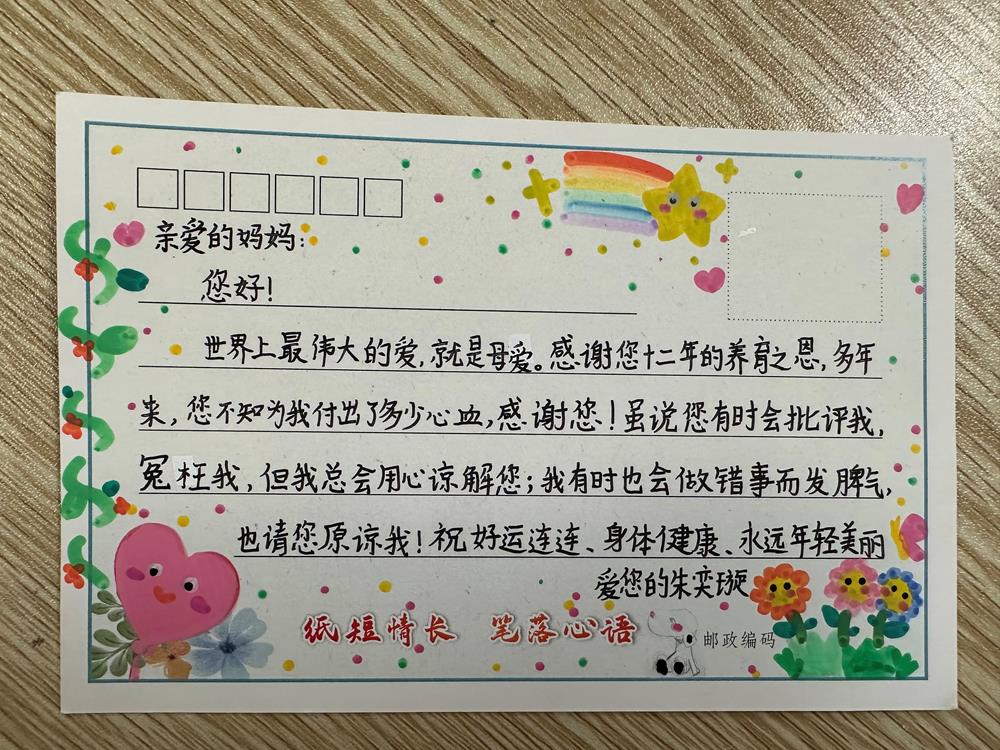 亲爱的妈妈:
您好!
世界上最伟大的爱,就是母爱。感谢您十二年的养育之恩,多年
来,您不知为我付出了多少心血,感谢您!虽说您有时会批评我,
冤枉我,但我总会用心谅解您;我有时也会做错事而发脾气,
也请您原谅我!祝好运连连、身体健康、永远年轻美丽
爱您的朱奕璇
纸短情长 笔落心语
邮政编码